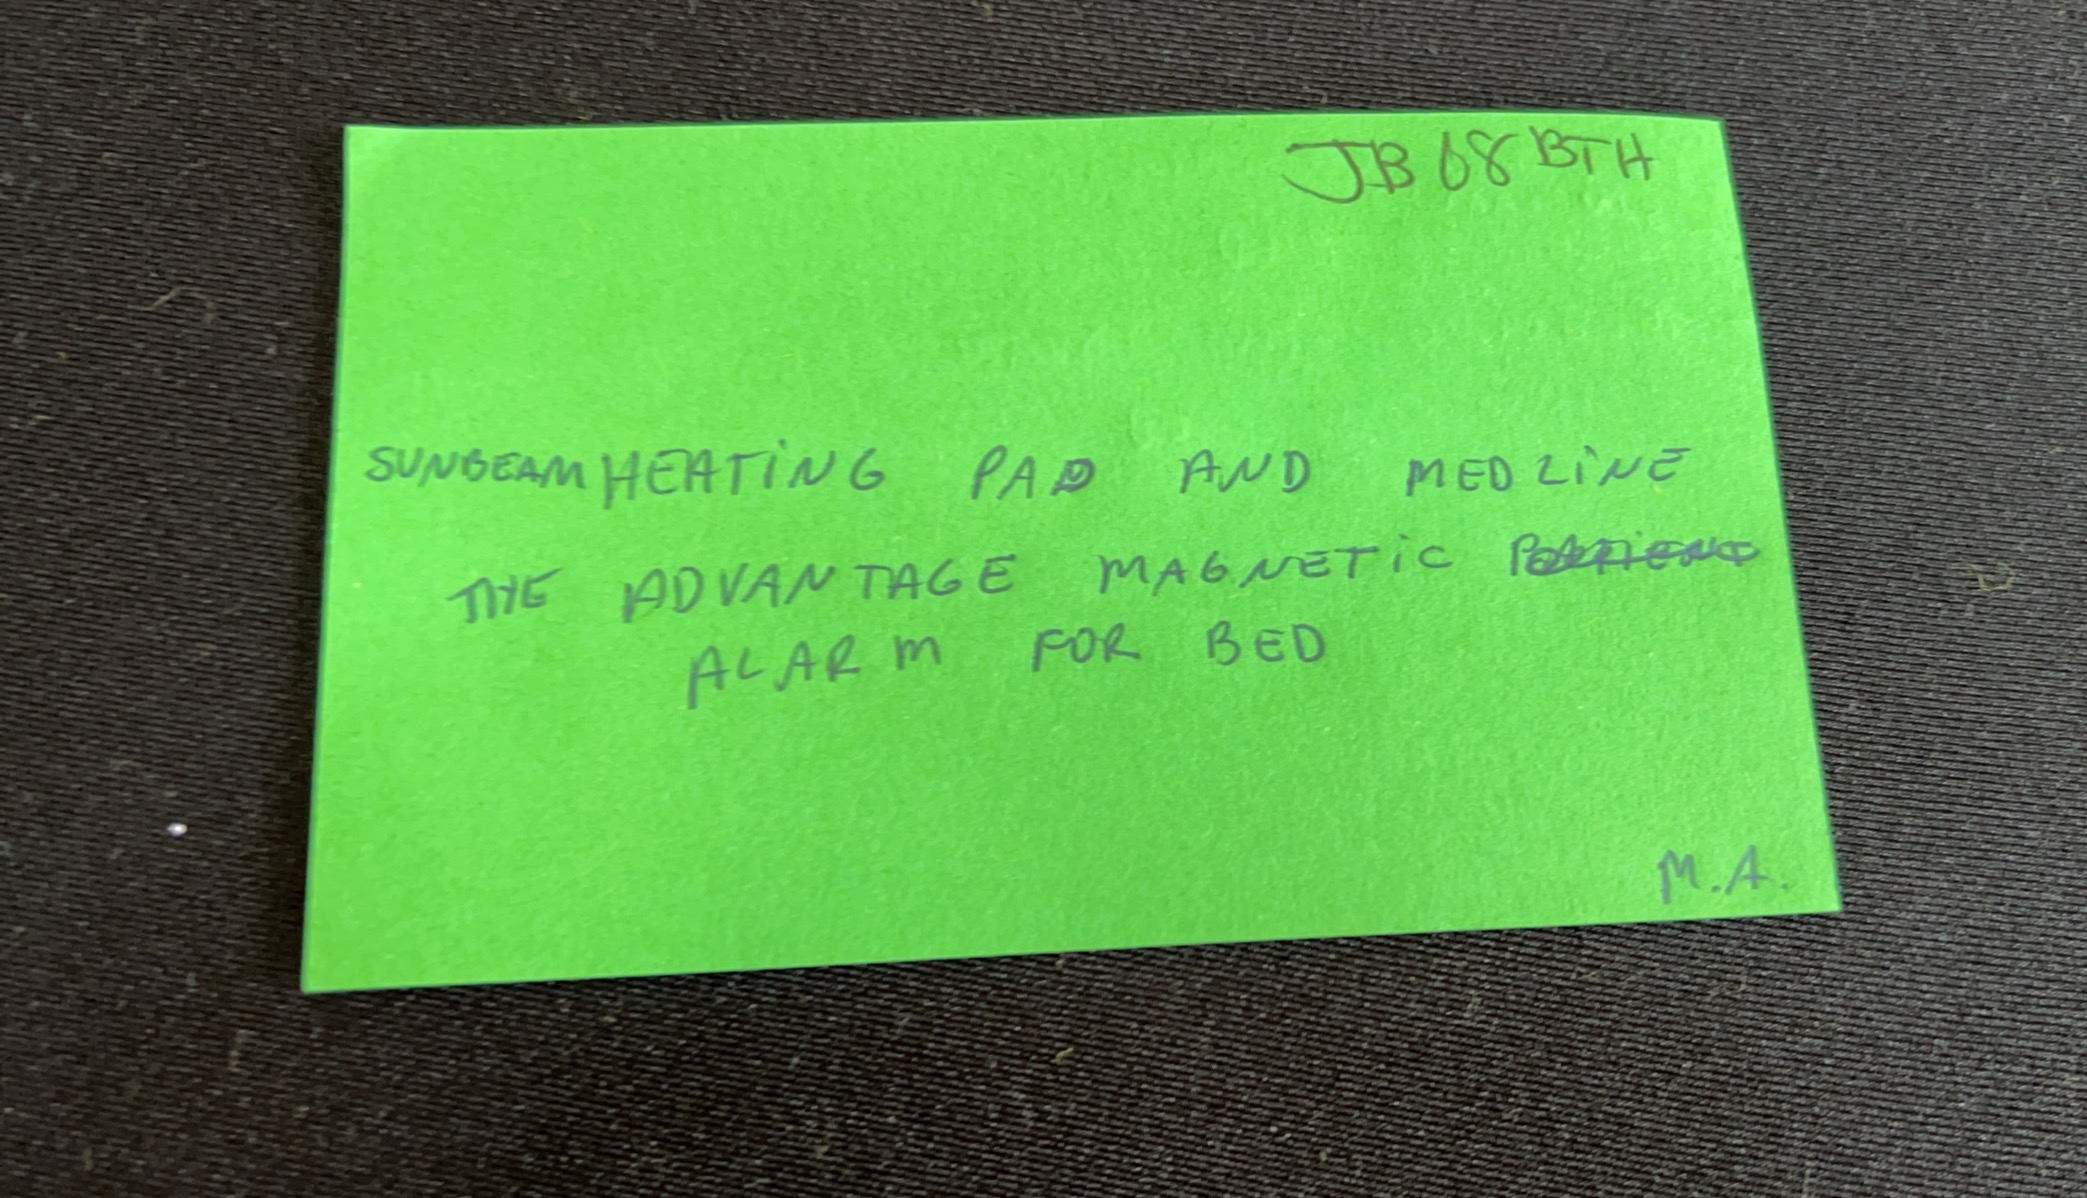 JB 68 BTH
SUNBEAM HEATING PAD AND MEDLINE
THE ADVANTAGE MAGNETIC
ALARM FOR BED
M.A.